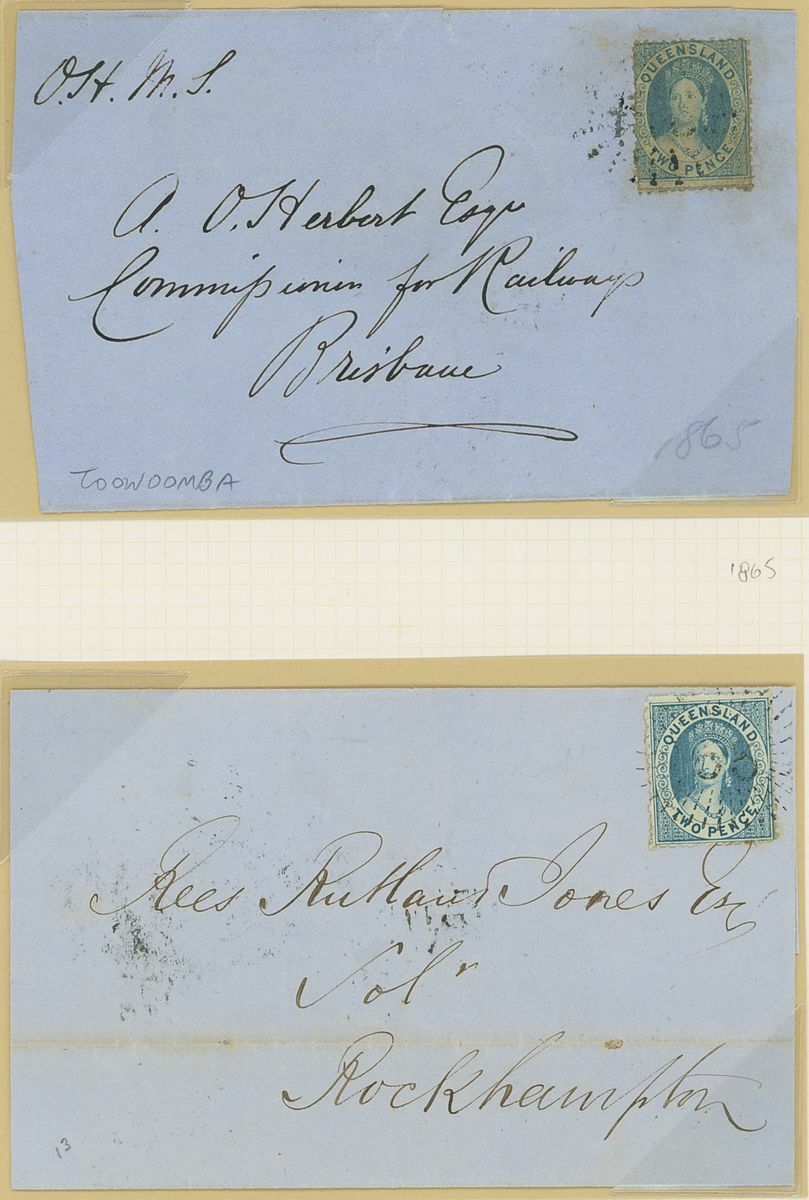 O.H.M.S.
QUEENSLAND
TWO PENCE
A. O. Herbert Esqr
Commissioner for Railways
Brisbane
TOOWOOMBA
1865
1865
QUEENSLAND
TWO PENCE
Rees Rutland Jones Esq
Solr
Rockhampton
13